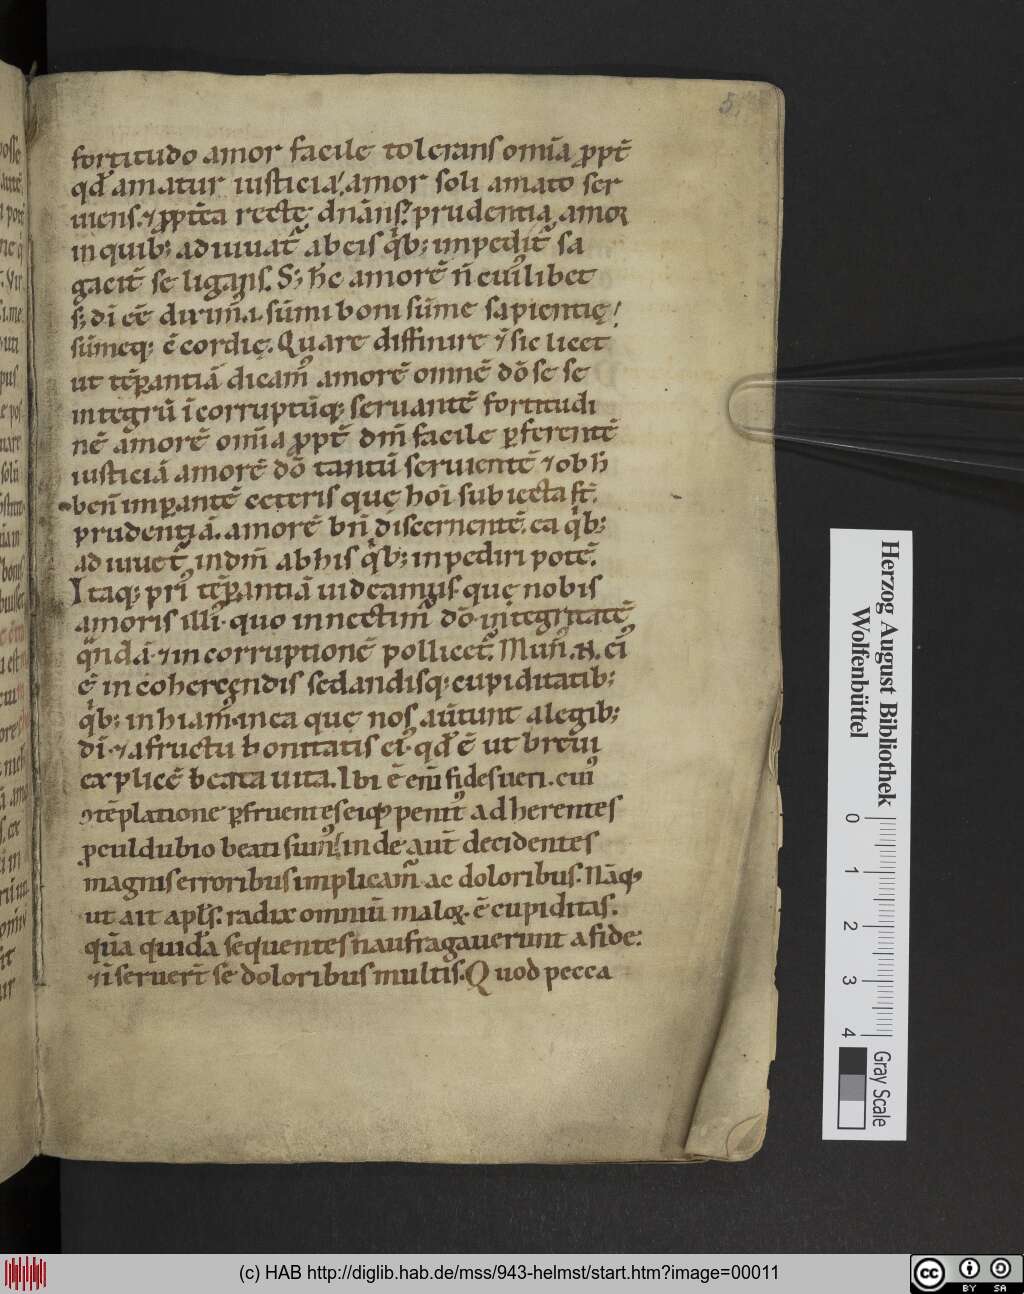 5.
fortitudo amor facile tolerans omīa ꝓpt̄
qd̄ amatur iusticia. amor soli amato ser
uiens. ⁊ ꝓpt̄ea rectę dn̄ans. prudentia amor
in quib; adiuuat᷑ ab eis q̄b; inpedit᷑ sa
gacit̄ se ligans. S; h̄c amorē n̄ cuiuslibet
s; dī eē dixim᷒.i. sūmi boni sūme sapientię
sūmeq; ↄcordię. Quare diffinire ⁊ sic licet
ut tēꝑantiā dicam᷒ amorē omnē dō se se
integrū īcorruptūq; seruantē fortitudi
nē amorē omīa ꝓpt̄ dm̄ facile ꝑferentē
iusticiā amorē dō tantū seruientē ⁊ob h̄
ben̄ imꝑantē ceteris quę hoī subiecta st̄.
prudentiā. amorē bn̄ discernentē. ea q̄b;
adiuuet᷑ in dm̄ ab his q̄b; inpediri potē.
Itaq; pri᷒ tēꝑantiā uideamus. quę nobis
amoris illi᷒ quo innectim᷒ dō integritatē
q̄ndā ⁊ incorruptionē pollicet᷑. Mun᷒ .n. ei᷒
ē in cohercendis sedandisq; cupiditatib;
q̄b; inhiam᷒ in ea quę nos auertunt a legib;
dī. ⁊a fructu bonitatis ei᷒. qd̄ ē ut breui
explicē beata uita. Ibi ē enī fides ueri. cui᷒
ↄtēplatione ꝑfruentes eiq; penit᷒ adherentes
ꝓculdubio beati sum᷒ inde aut̄ decidentes
magnis erroribus implicam᷒ ac doloribus. Nāq;
ut ait apl̄s. radix omniū maloꝝ. ē cupiditas.
quā quidā sequentes naufragauerunt a fide.
⁊ īseruer̄t se doloribus multis. Quod pecca
Herzog August Bibliothek
Wolfenbüttel
0 1 2 3 4
Gray Scale
(c) HAB http://diglib.hab.de/mss/943-helmst/start.htm?image=00011
cc BY SA